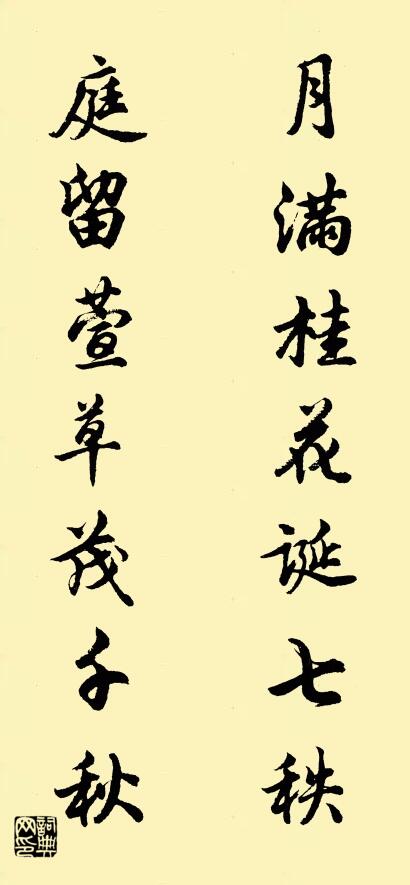 月满桂花诞七秩
庭留萱草茂千秋
词典网印